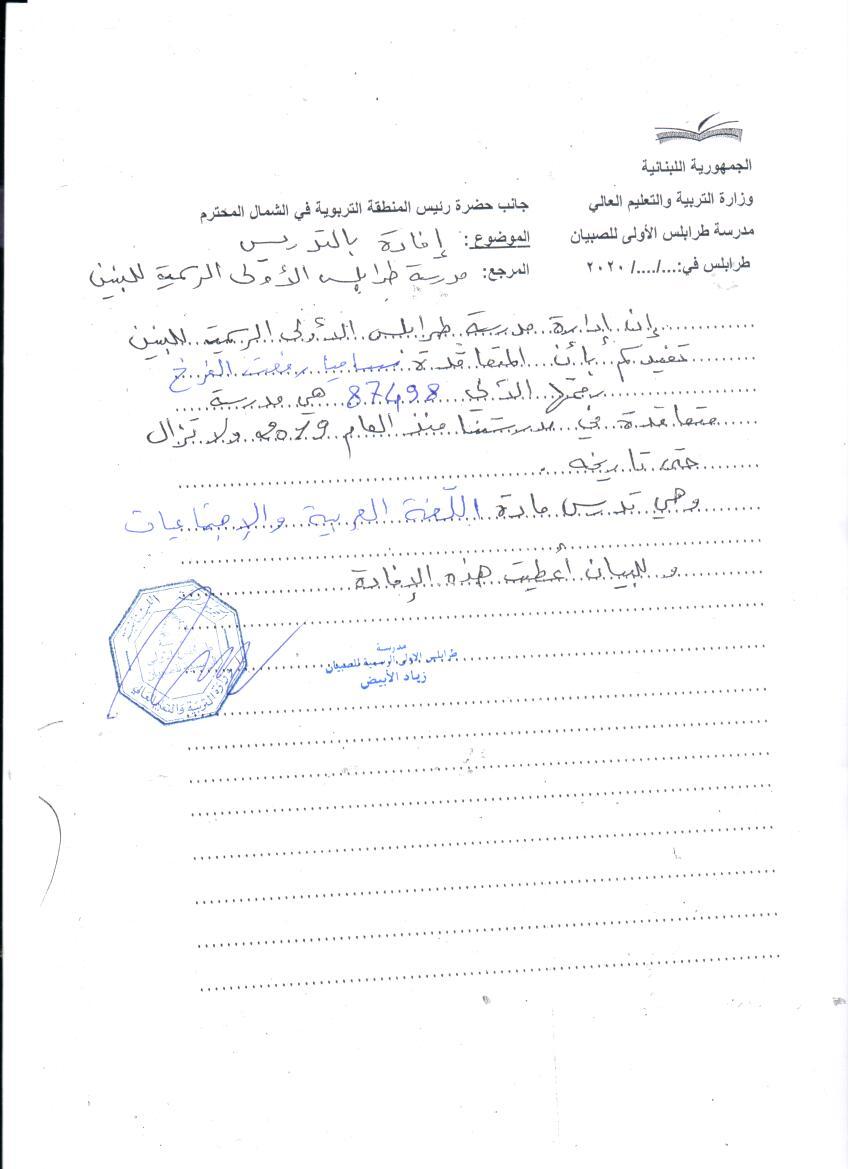 الجمهورية اللبنانية
وزارة التربية والتعليم العالي
مدرسة طرابلس الأولى للصبيان
طرابلس في:.../..../ ٢٠٢٠
جانب حضرة رئيس المنطقة التربوية في الشمال المحترم
الموضوع: إفادة بالتدريس
المرجع: مدرسة طرابلس الأولى الرسمية للبنين
إن إدارة مدرسة طرابلس الأولى الرسمية للبنين
تفيدكم بأن المتعاقدة رفعت الفرخ
رقمها الآلي 87498 هي مدرسة
متعاقدة في مدرستنا منذ العام 2019 ولا تزال
حتى تاريخه.
وهي تدرس مادة اللّغة العربية والإجتماعيات
و للبيان أعطيت هذه الإفادة
مدرسة
طرابلس الاولى الرسمية للصبيان
زياد الأبيض
وزارة التربية والتعليم العالي